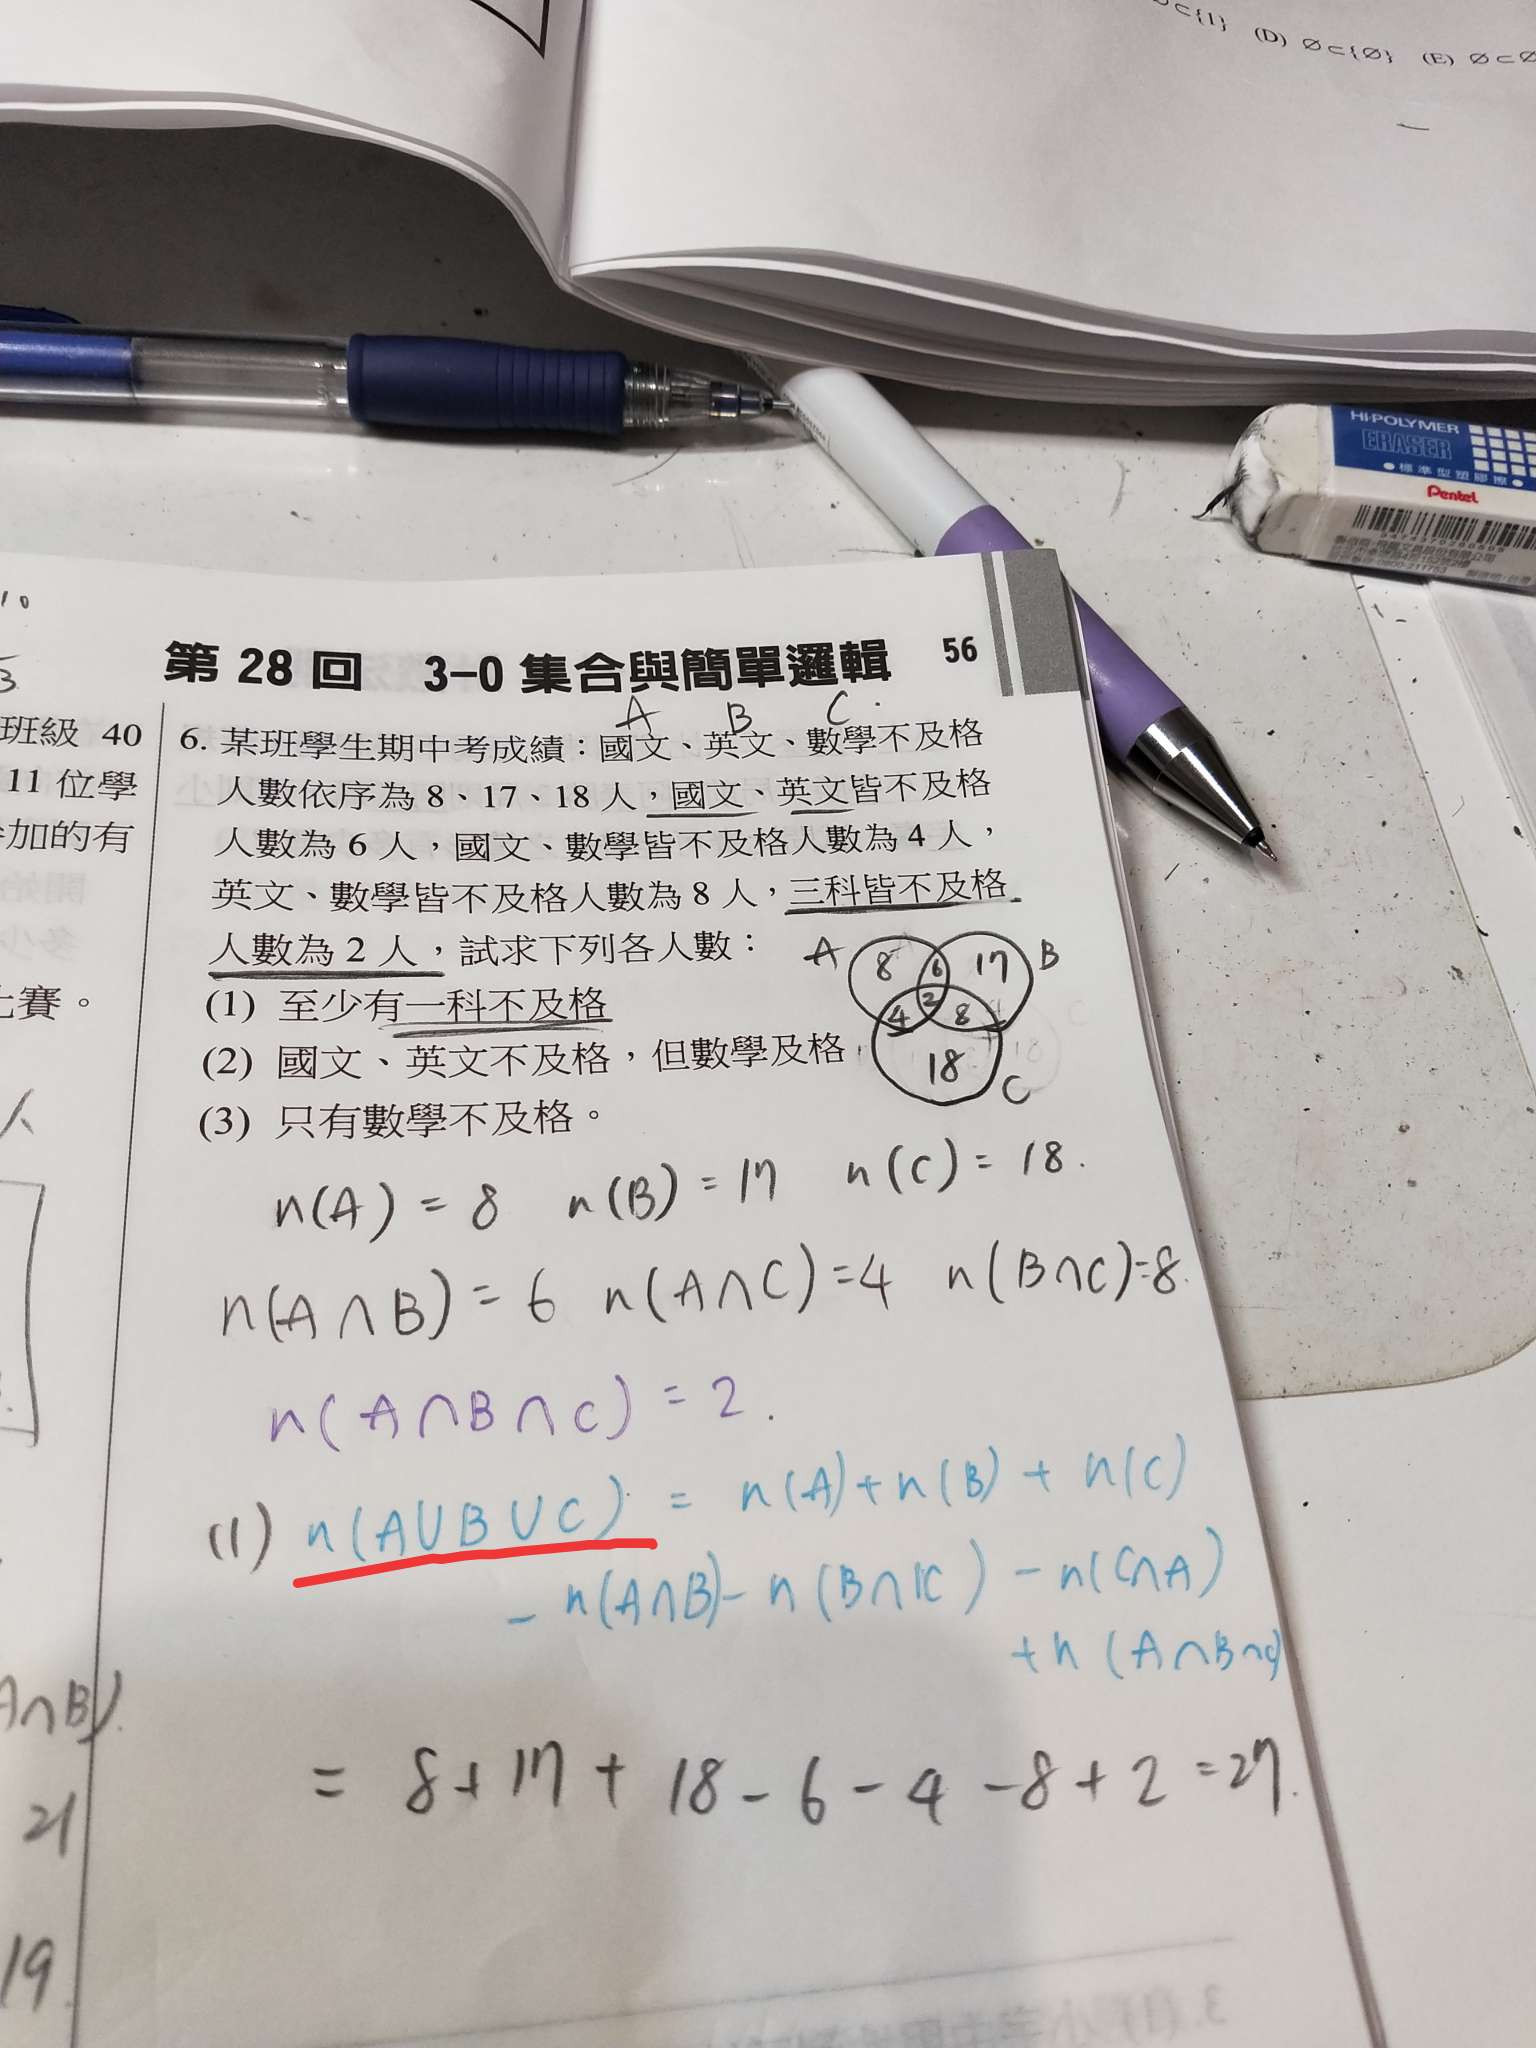 ⊂{1} (D) ∅⊂{∅} (E) ∅⊂∅
HI-POLYMER
ERASER
●標準型塑膠擦●
Pentel
第 28 回 3-0 集合與簡單邏輯 56
班級 40
11 位學
參加的有
比賽。
人
A∩B).
21
19
A B C
6. 某班學生期中考成績：國文、英文、數學不及格
人數依序為 8、17、18 人，國文、英文皆不及格
人數為 6 人，國文、數學皆不及格人數為 4 人，
英文、數學皆不及格人數為 8 人，三科皆不及格
人數為 2 人，試求下列各人數：
(1) 至少有一科不及格
(2) 國文、英文不及格，但數學及格
(3) 只有數學不及格。
A 8 6 17 B
4 2 8
18 C
n(A) = 8 n(B) = 17 n(C) = 18.
n(A∩B) = 6 n(A∩C) = 4 n(B∩C) = 8.
n(A∩B∩C) = 2.
(1) n(A∪B∪C) = n(A)+n(B)+n(C)
- n(A∩B) - n(B∩C) - n(C∩A)
+n(A∩B∩C)
= 8+17+18-6-4-8+2=27.